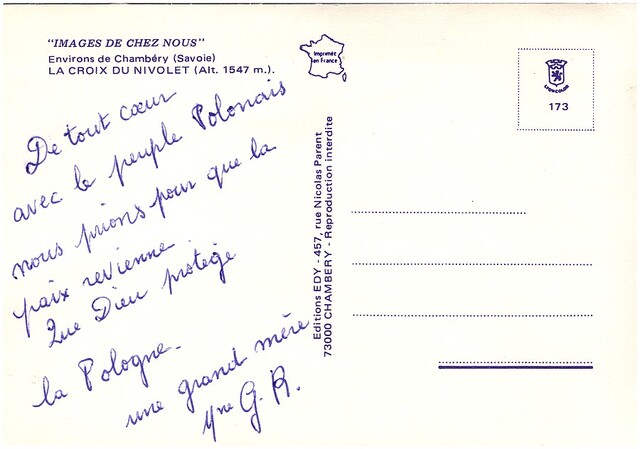 "IMAGES DE CHEZ NOUS"
Environs de Chambéry (Savoie)
LA CROIX DU NIVOLET (Alt. 1547 m.).
De tout cœur
avec le peuple Polonais
nous prions pour que la
paix revienne
Que Dieu protège
la Pologne.
une grand mère
Mme G. R.
Imprimée
en France
Editions EDY - 457, rue Nicolas Parent
73000 CHAMBERY - Reproduction interdite
LYONCOLOR
173